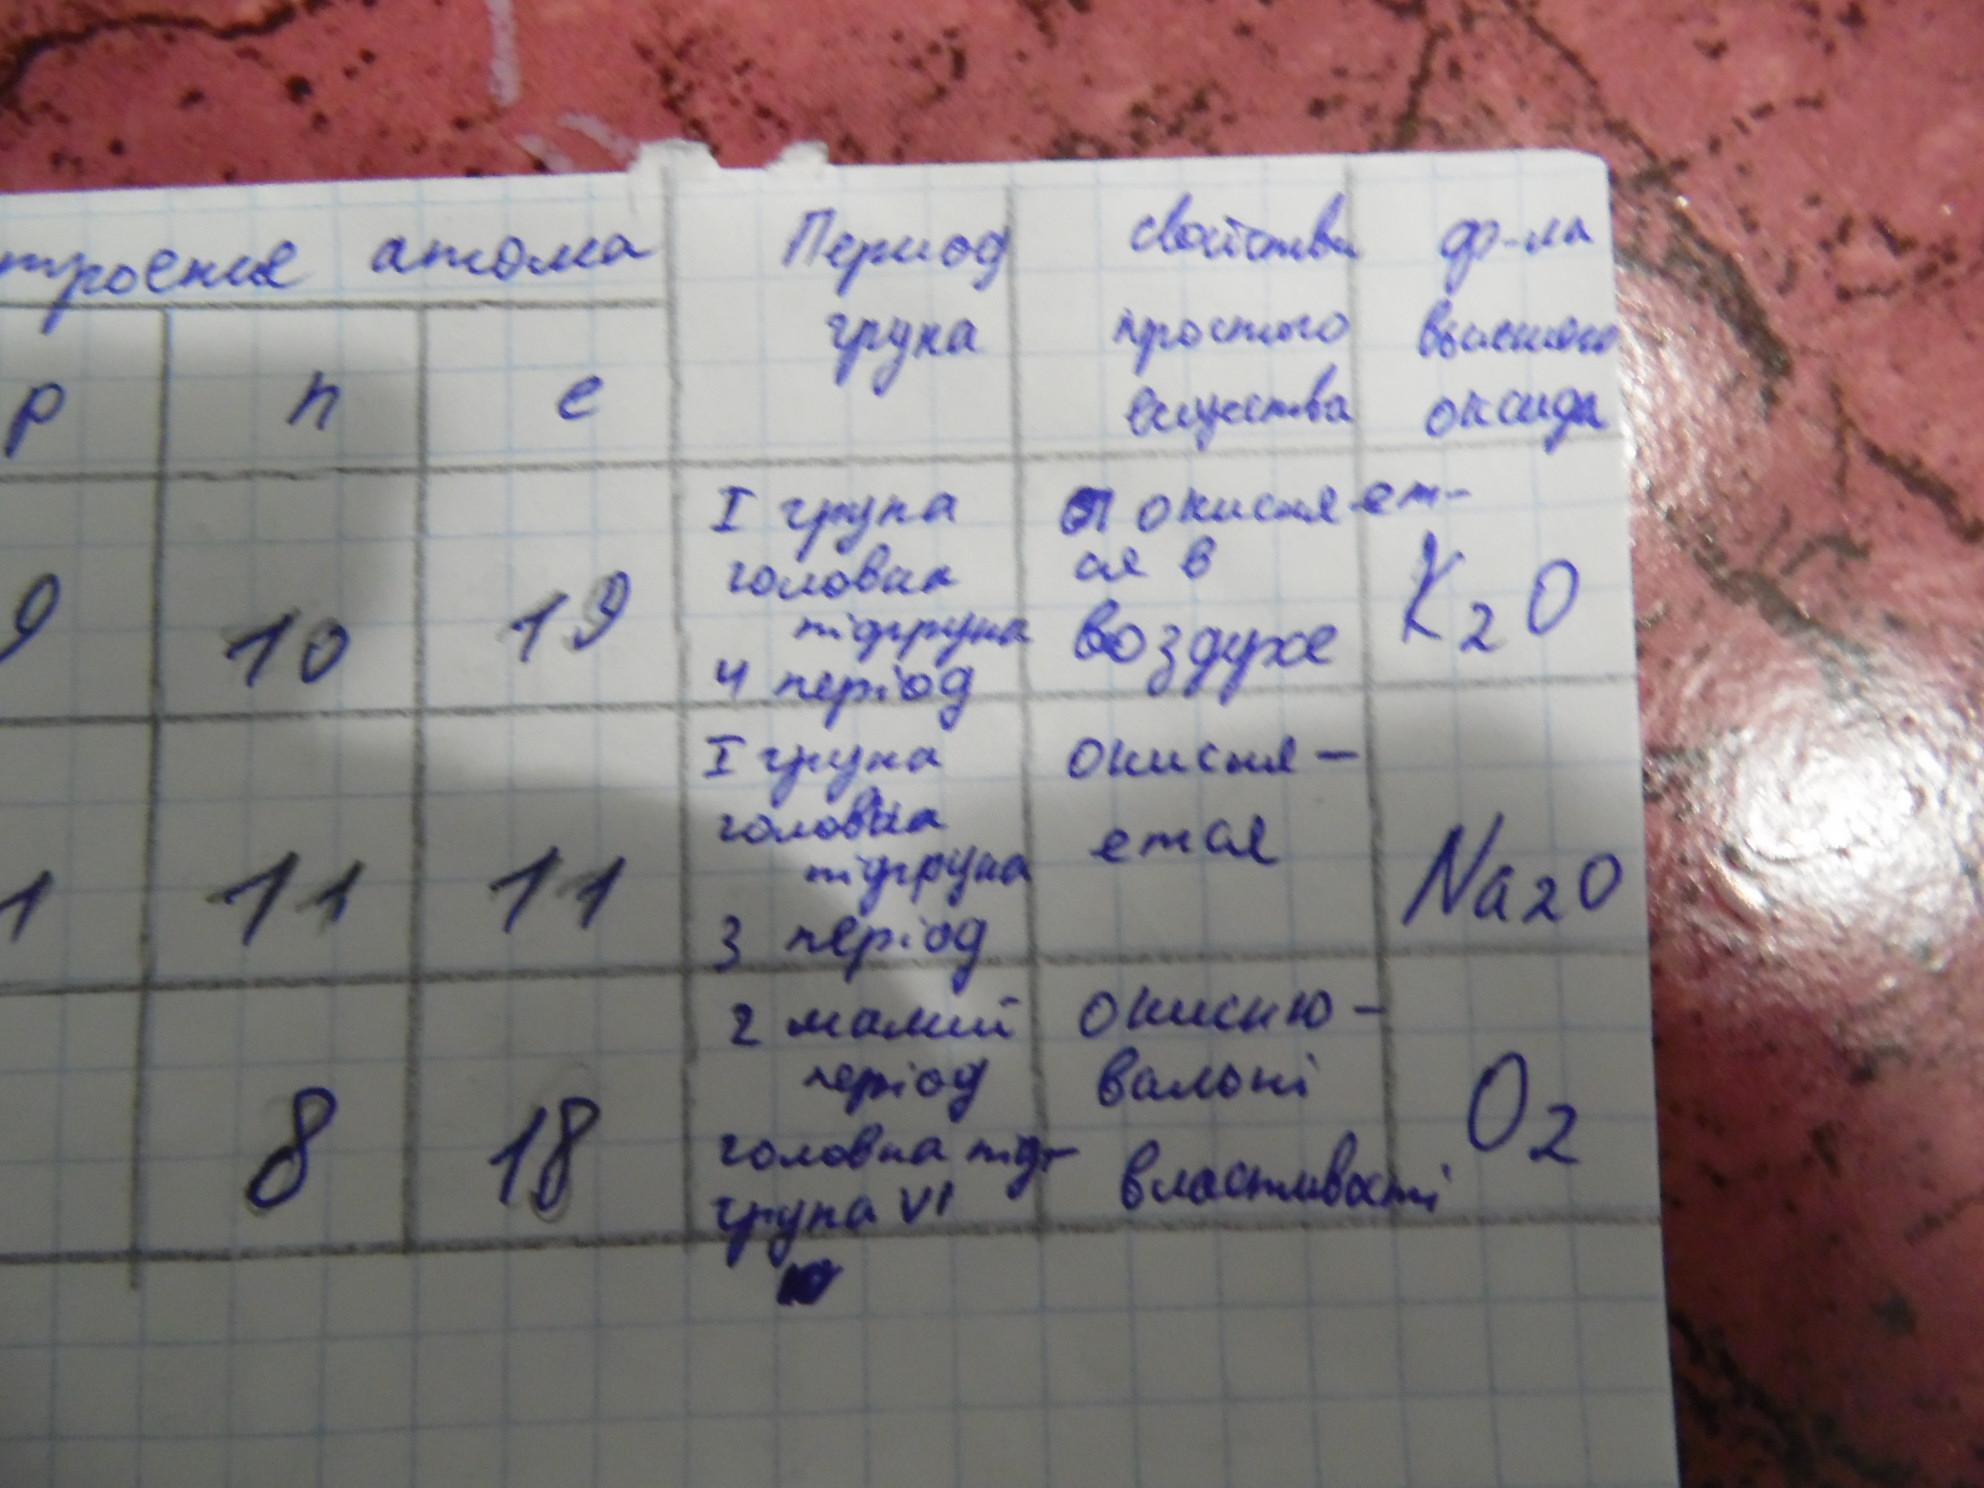 троения атома
Период
група
свойства
простого
вещества
ф-ла
высшого
оксида
р
n
е
9
10
19
I група
головна
підгрупа
4 період
окисняет-
ся в
воздухе
K₂O
1
11
11
I група
головна
підгрупа
3 період
окисня-
ется
Na₂O
8
18
2 малий
період
головна під-
група VI
окисню-
вальні
властивості
O₂